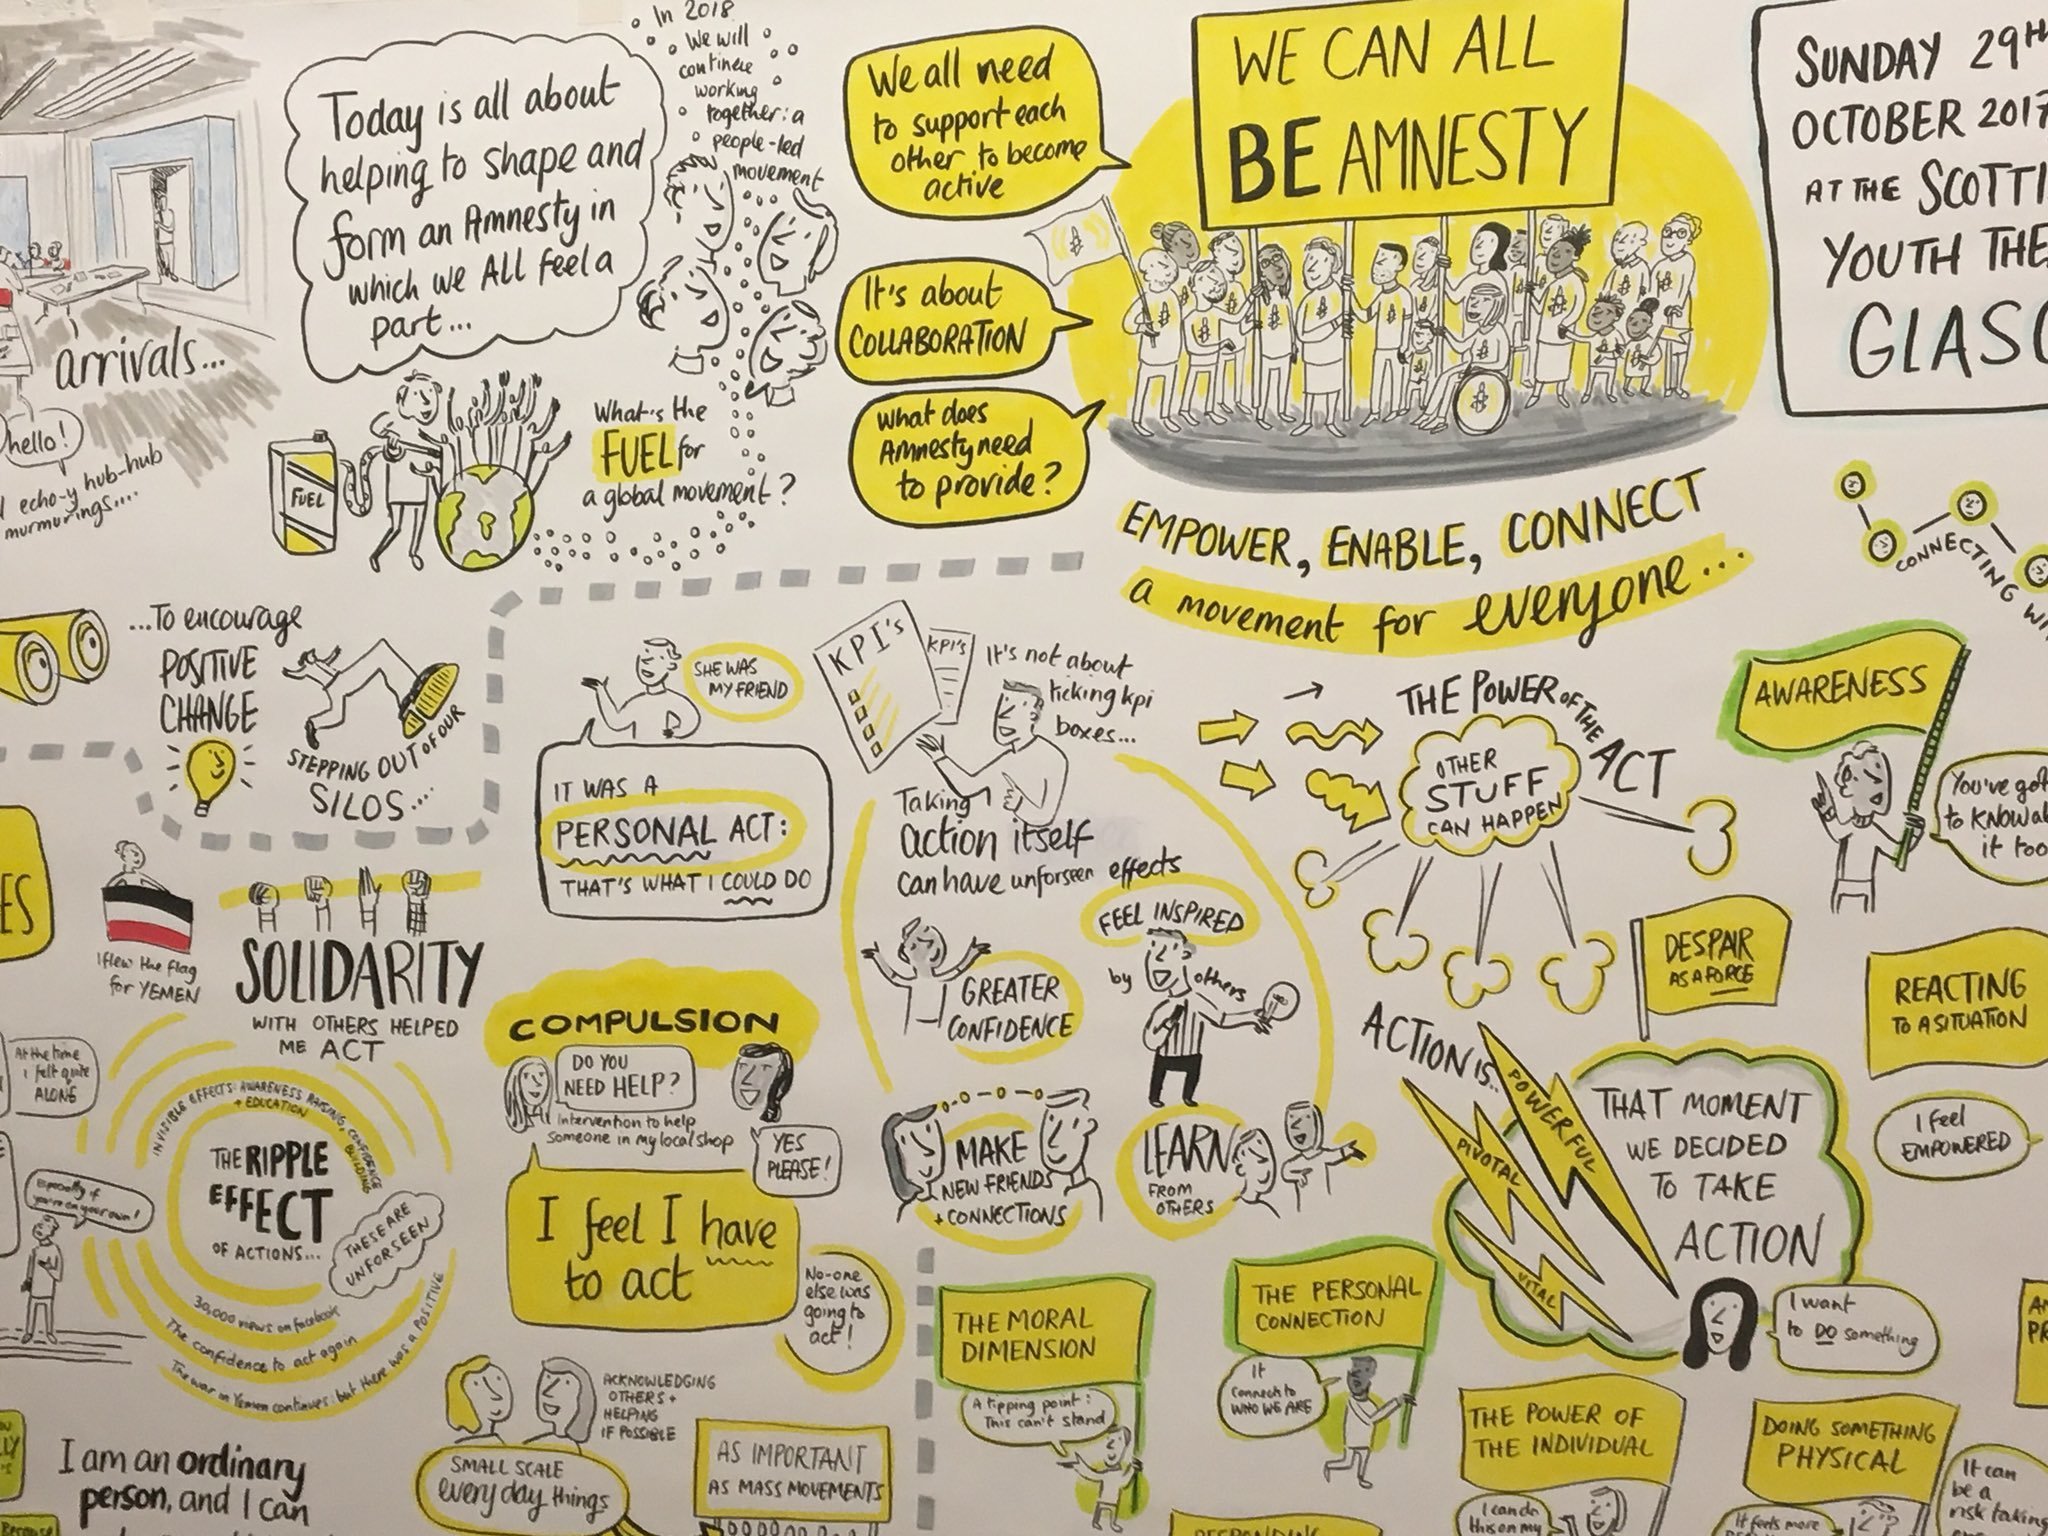 Today is all about
helping to shape and
form an Amnesty in
which we ALL feel a
part...
In 2018
We will
continue
working
together: a
people-led
movement
We all need
to support each
other to become
active
It's about
COLLABORATION
What does
Amnesty need
to provide?
WE CAN ALL
BE AMNESTY
SUNDAY 29TH
OCTOBER 2017
AT THE SCOTTI
YOUTH THE
GLASG
arrivals...
hello!
echo-y hub-hub
murmurings....
FUEL
What's the
FUEL for
a global movement?
EMPOWER, ENABLE, CONNECT
a movement for everyone...
CONNECTING WI
...To encourage
POSITIVE
CHANGE
STEPPING OUT OF OUR
SILOS....
SHE WAS
MY FRIEND
IT WAS A
PERSONAL ACT:
THAT'S WHAT I COULD DO
KPI's
KPI's
It's not about
ticking kpi
boxes...
Taking
action itself
can have unforseen effects
THE POWER OF THE ACT
OTHER
STUFF
CAN HAPPEN
AWARENESS
You've got
to KNOW a
it too
ES
I flew the flag
for YEMEN
SOLIDARITY
WITH OTHERS HELPED
ME ACT
At the time
I felt quite
ALONE
Especially if
you're on your own!
INVISIBLE EFFECTS: AWARENESS RAISING, CONFIDENCE BUILDING
+ EDUCATION
THE RIPPLE
EFFECT
OF ACTIONS...
THESE ARE
UNFORSEEN
30,000 views on facebook
The confidence to act again
The war in Yemen continues: but there was a POSITIVE
COMPULSION
DO YOU
NEED HELP?
Intervention to help
someone in my local shop
YES
PLEASE!
I feel I have
to act
No-one
else was
going to
act!
FEEL INSPIRED
by others
GREATER
CONFIDENCE
MAKE
NEW FRIENDS
+ CONNECTIONS
LEARN
FROM
OTHERS
DESPAIR
AS A FORCE
REACTING
TO A SITUATION
I feel
EMPOWERED
ACTION IS...
POWERFUL
PIVOTAL
VITAL
THAT MOMENT
WE DECIDED
TO TAKE
ACTION
I want
to DO something
THE MORAL
DIMENSION
A tipping point:
This can't stand
THE PERSONAL
CONNECTION
It
connects to
WHO WE ARE
THE POWER OF
THE INDIVIDUAL
I can do
this on my
DOING SOMETHING
PHYSICAL
It feels more
It can
be a
risk taking
AN
PR
ACKNOWLEDGING
OTHERS +
HELPING
IF POSSIBLE
SMALL SCALE
every day things
AS IMPORTANT
AS MASS MOVEMENTS
I am an ordinary
person, and I can
Because
RESPONDING